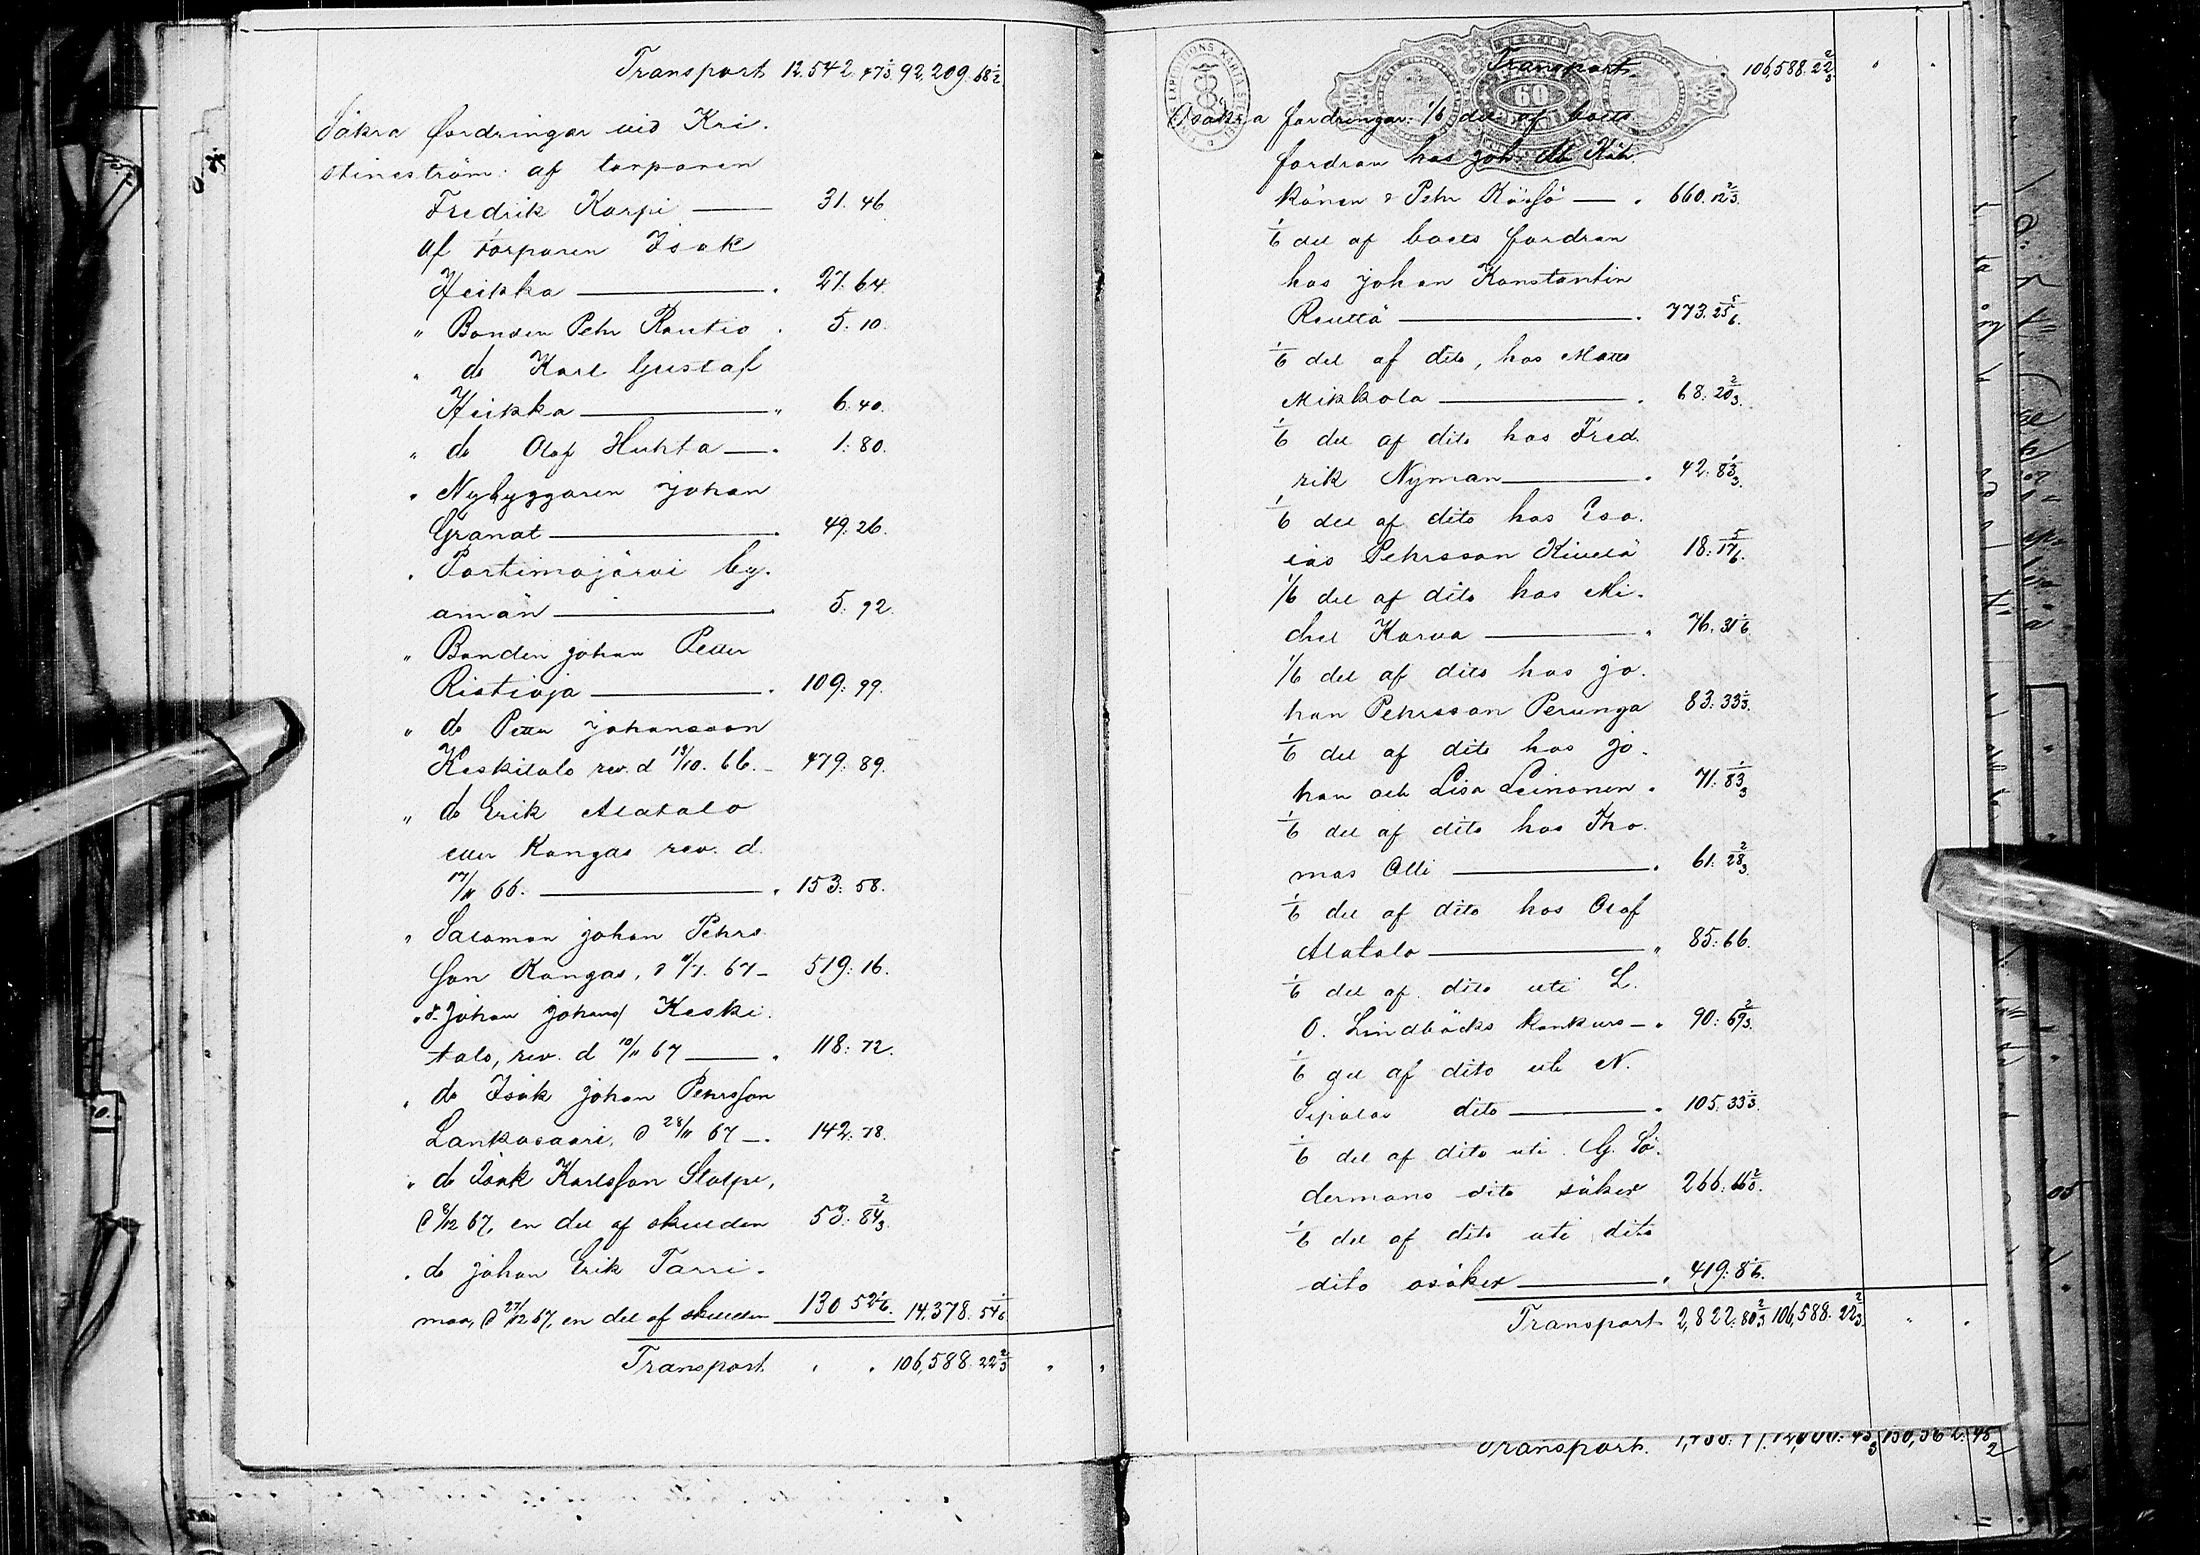 Transport 12,542. 47 1/3. 92,209. 68 1/2.
Säkra fordringar vid Kri-
stineström: af torparen
Fredrik Karpi — 31. 46
af torparen Isak
Heikka — 27. 64.
" Bonden Pehr Rautio . 5. 10.
" do Karl Gustaf
Heikka — " 6. 40.
" do Olof Huhta — . 1. 80.
" Nybyggaren Johan
Granat — . 49. 26.
" Portimojärvi by-
amän — . 5. 92.
" Bonden Johan Petter
Ristioja — . 109. 99.
" do Petter Johansson
Keskitalo rev. d 13/10. 66. — 479. 89.
" do Erik Alatalo
eller Kangas rev. d.
17/11 66. — . 153. 58.
" Salomon Johan Pehrs-
son Kangas, 67 — 519. 16.
" do Johan Johans/ Keski-
talo, rev. d 10/11 67 — . 118: 72.
" do Isak Johan Pehrsson
Lankosaari, d 28/11 67 — . 142: 78.
" do Isak Karlsson Stolpe,
d 9/12 67, en del af skulden 53: 84 2/3.
" do Johan Erik Tarri-
maa, d 27/12 67, en del af skulden 130 52 1/6. 14,378. 54 1/6
Transport . . 106,588. 22 2/3 " "
Transport . 106,588. 22 2/3 " "
60
Osäkra fordringar: 1/6 del af boets
fordran hos Joh.
könen & Pehr — . 660. 12 2/3.
1/6 del af boets fordran
hos Johan Konstantin
Rauttö — . 773. 25 5/6.
1/6 del af dito, hos Matts
Mikkola — . 68. 20 2/3.
1/6 del af dito hos Fred-
rik Nyman — . 42. 83 1/3.
1/6 del af dito hos Esa-
ias Pehrsson Kivelä 18: 17 5/6.
1/6 del af dito hos Mi-
chel Karva — . 76. 31 1/6
1/6 del af dito hos Jo-
han Pehrsson Perunga 83: 33 1/3.
1/6 del af dito hos Jo-
han och Lisa Leinonen . 71: 83 1/3
1/6 del af dito hos Tho-
mas Olli — . 61: 28 2/3.
1/6 del af dito hos Olof
Alatalo — " 85: 66.
1/6 del af dito uti L.
O. Lindbäcks konkurs — . 90: 69 2/3.
1/6 del af dito uti N.
Sipolas dito — . 105. 33 1/3.
1/6 del af dito uti G. Sö-
dermans dito säker 266: 66 2/3.
1/6 del af dito uti dito
dito osäker — . 419: 8 1/6.
Transport 2,822: 80 2/3 106,588. 22 2/3. " .
Transport.